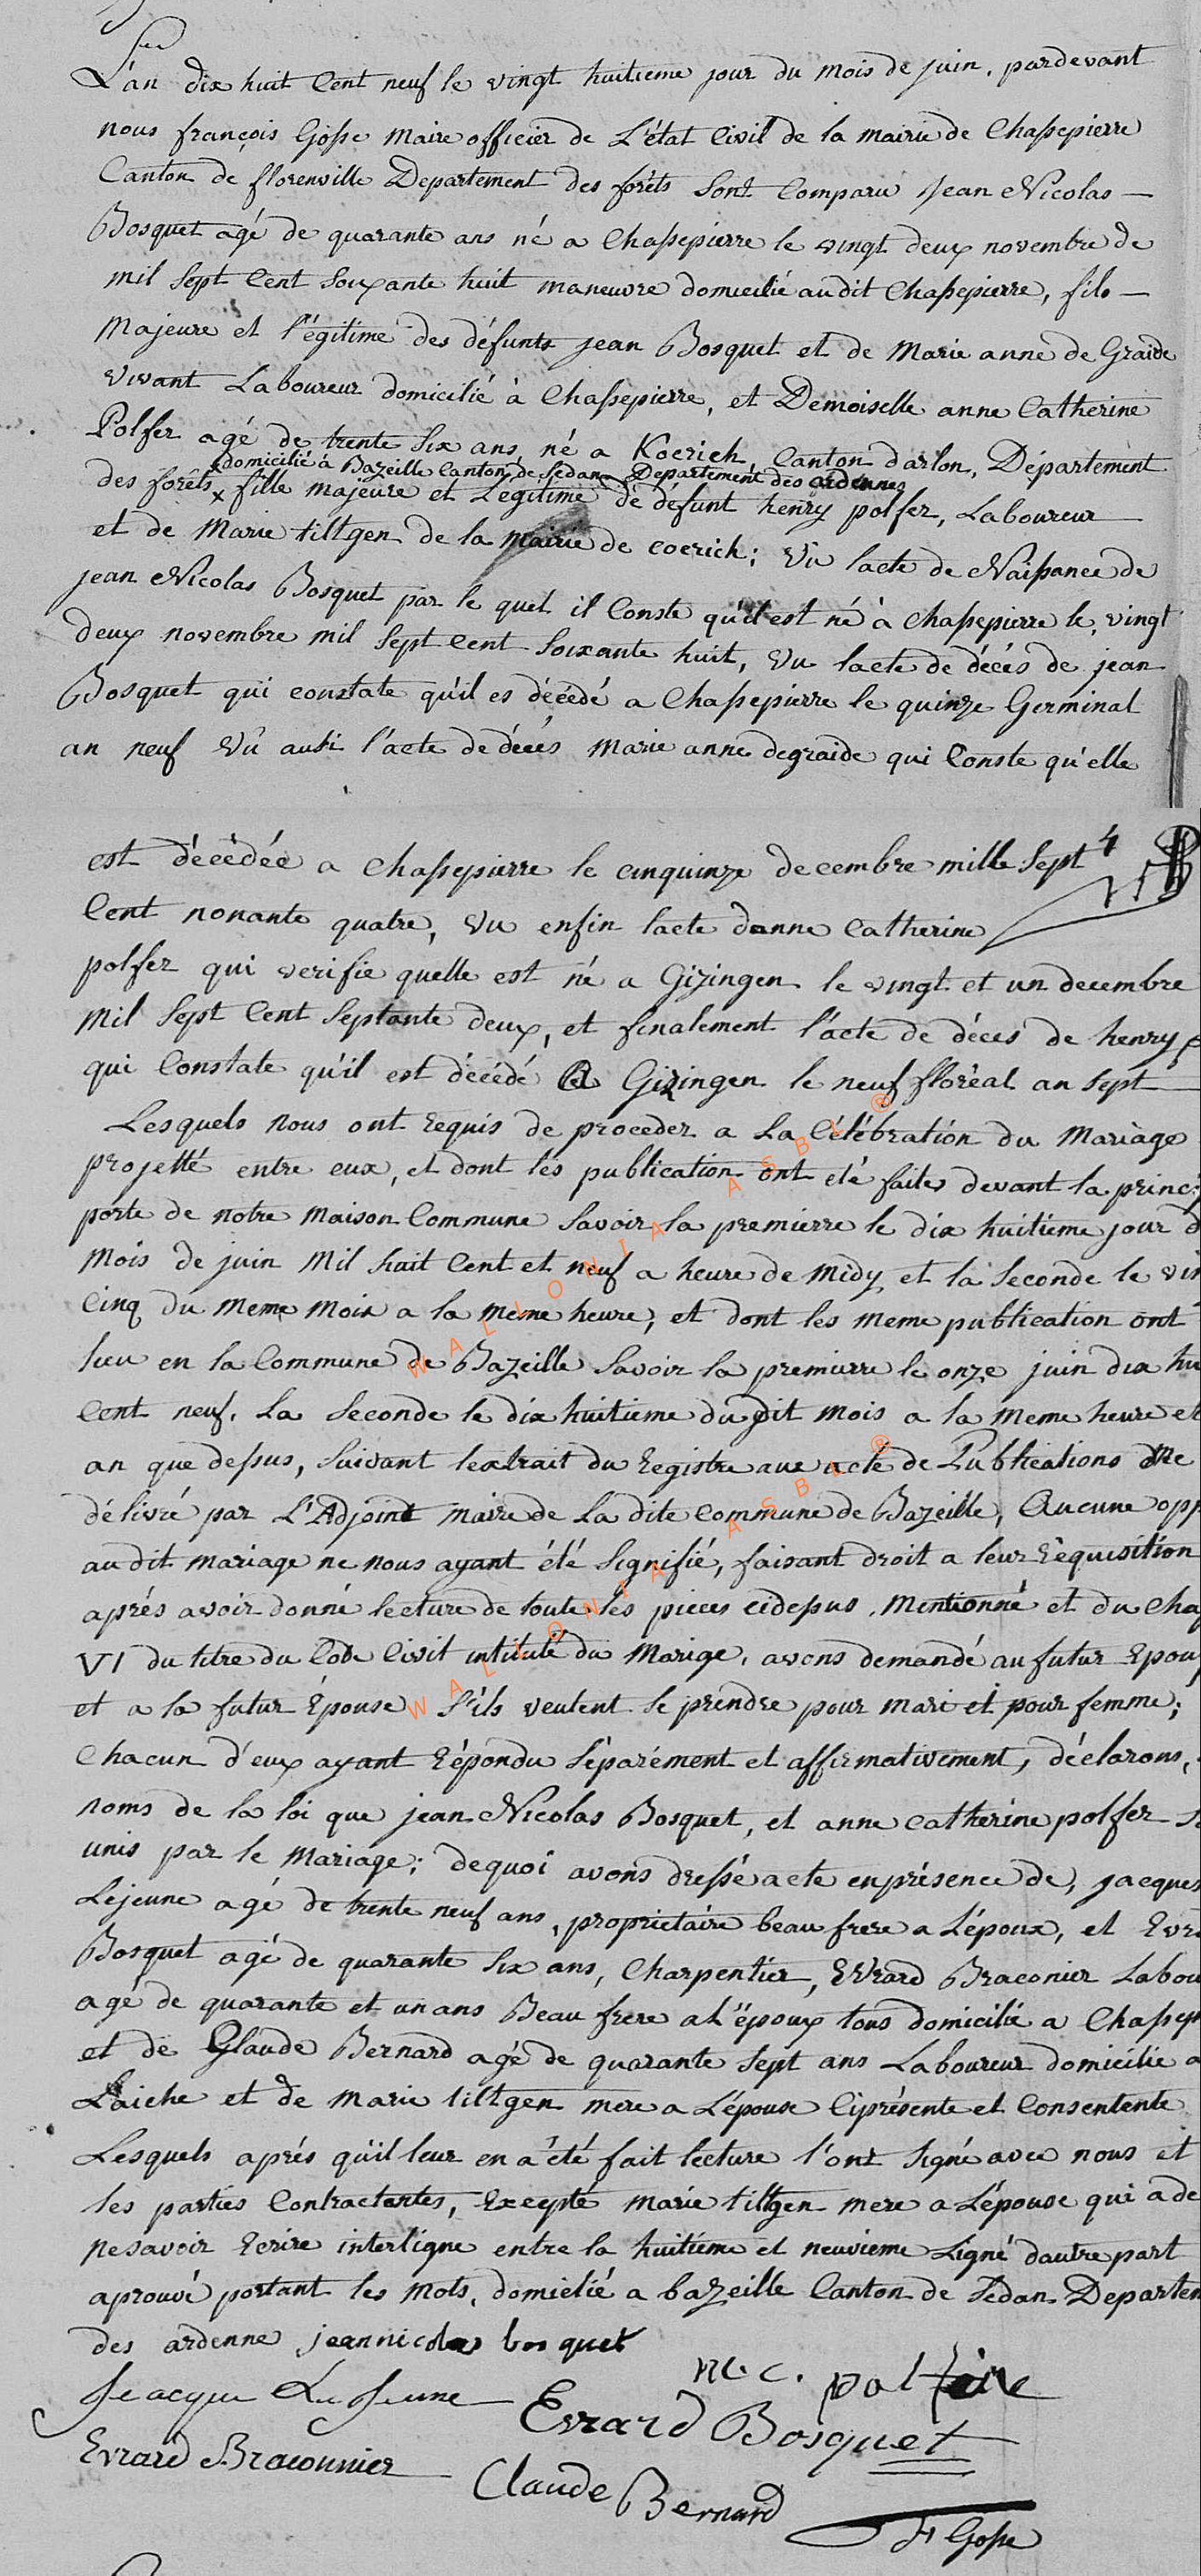 L'an dix huit Cent neuf le vingt huitieme jour du mois de juin, pardevant
nous françois Gosse maire officier de L'état Civil de la mairie de Chassepierre
Canton de florenville Departement des forêts Sont Comparu Jean Nicolas —
Bosquet agé de quarante ans né a Chassepierre le vingt deux novembre de
mil Sept Cent Soixante huit maneuvre domicilié audit Chassepierre, fils —
Majeure et légitime des défunts jean Bosquet et de Marie anne de Graide
vivant Laboureur domicilié à Chassepierre, et Demoiselle anne Catherine
Polfer agé de trente Six ans, né a Koerich Canton darlon, Département
x domicilié à Bazeille Canton de Sedan Departement des ardennes
des forêts x fille majeure et Légitime de défunt henry polfer, Laboureur
et de Marie tiltgen de la mairie de coerich; Vu lacte de Naissance de
jean Nicolas Bosquet par le quel il Conste qu'il est né à chassepierre le vingt
deux novembre mil Sept Cent Soixante huit, Vu lacte de décés de jean
Bosquet qui constate qu'il es décédé a Chassepierre le quinze Germinal
an neuf Vû aussi l'acte de décés Marie anne degraide qui Conste qu'elle
est décédée a Chassepierre le cinquinze decembre mille Sept 4
Cent nonante quatre, Vu enfin lacte danne Catherine
polfer qui verifie quelle est né a Gizingen le vingt et un decembre
Mil Sept Cent Septante deux, et finalement l'acte de déces de henry
qui Constate qu'il est décédé a Gizingen le neuf floréal an Sept
Lesquels nous ont requis de proceder a La Célébration du Mariage
projetté entre eux, et dont les publication ont eté faites devant la princi
porte de notre Maison Commune Savoir la premierre le dix huitieme jour d
Mois de juin Mil huit Cent et neuf a heure de Midy et la Seconde le vin
Cinq du Meme Mois a la Meme heure, et dont les Meme publication ont
lieu en la Commune de Bazeille Savoir la premierre le onze juin dix hu
Cent neuf. La Seconde le dix huitieme du dit Mois a la Meme heure et
an que dessus, Suivant lextrait du Registre aux acte de Publications
délivré par L'Adjoint maire de La dite Commune de Bazeille, Aucune opp
au dit mariage ne nous ayant été Signifié, faisant droit a leur Réquisition
aprés avoir donné lecture de toute les pieces cidessus Mentionné et du Chap
VI du titre du Code Civil intitulé du Marige, avons demandé au futur Epou
et a la futur Épouse S'ils veulent Se prendre pour mari et pour femme;
Chacun d'eux ayant Répondu Séparément et affirmativement, déclarons,
noms de la loi que jean Nicolas Bosquet, et anne catherine polfer So
unis par le Mariage; dequoi avons dressé acte enprésence de, jacques
Lejeune agé de trente neuf ans, proprietaire beau frere a Lépoux, et Evra
Bosquet agé de quarante Six ans, Charpentier, Evrard Braconier Labou
agé de quarante et un ans Beau frere a L'époux tous domicilié a Chassep
et de Glaude Bernard agé de quarante Sept ans Laboureur domicilié a
Laiche et de Marie tiltgen mere a Lépouse Ciprésente et Consentente
Lesquels aprés qu'il leur en a été fait lecture l'ont Signé avec nous et
les parties Contractantes, Excepté marie tiltgen mere a Lépouse qui a de
ne savoir Ecrire interligne entre la huitieme et neuvieme Ligné dautre part
aprouvé portant les Mots, domicilié a bazeille Canton de Sedan Departem
des ardenne jeannicolas bosquet
m. c. polfer
Jeacque Le Jeune
Evrard Bosquet
Evrard Braconnier
Claude Bernard
F Gosse
WALLONIA ASBL ®
WALLONIA ASBL ®